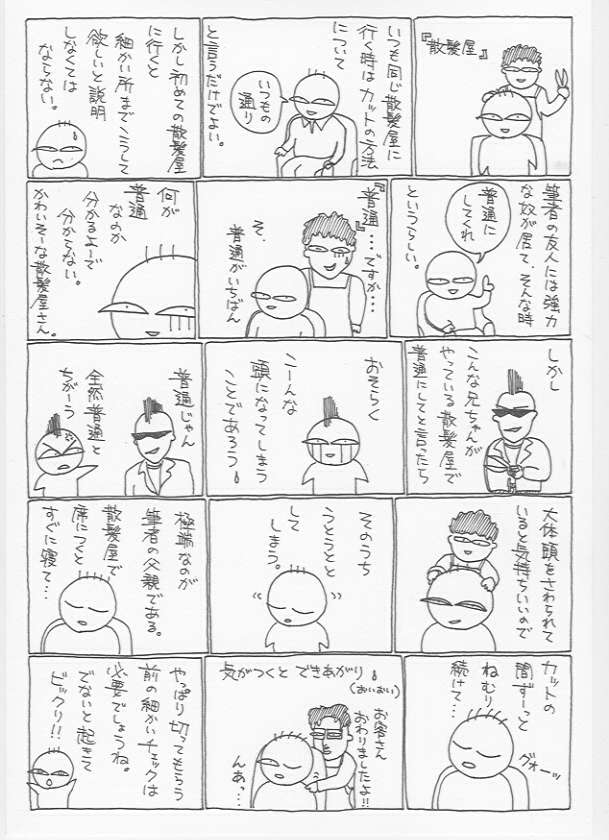 『散髪屋』
いつも同じ散髪屋に
行く時はカットの方法
について
いつもの
通り
と言うだけでよい。
しかし初めての散髪屋
に行くと
細かい所までこうして
欲しいと説明
しなくては
ならない。
筆者の友人には強力
な奴が居て、そんな時
普通に
してくれ
というらしい。
『普通』…ですか…
そ、
普通がいちばん
何が
普通
なのか
分かるよーで
分からない。
かわいそーな散髪屋さん。
しかし
こんな兄ちゃんが
やっている散髪屋で
普通にしてと言ったら
おそらく
こーんな
頭になってしまう
ことであろう!
普通じゃん
全然普通と
ちがーう
大体頭をさわられて
いると気持ちいいので
そのうち
うとうとと
して
しまう。
極端なのが
筆者の父親である。
散髪屋で
席につくと
すぐに寝て…
カットの
間ずーっと
ねむり
続けて…
グォーッ
気がつくとできあがり!
(おいおい)
お客さん
おわりましたよ!!
んあっ…
やっぱり切ってもらう
前の細かいチェックは
必要でしょうね。
でないと起きて
ビックリ!!